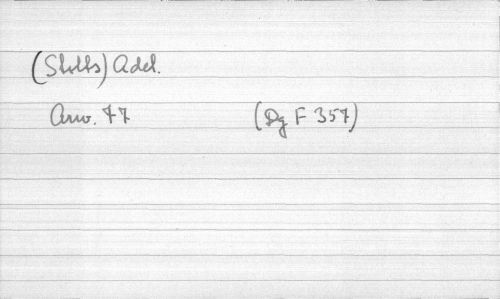 (Slotts) Adel.
Arw. 47 (Dg F 357)